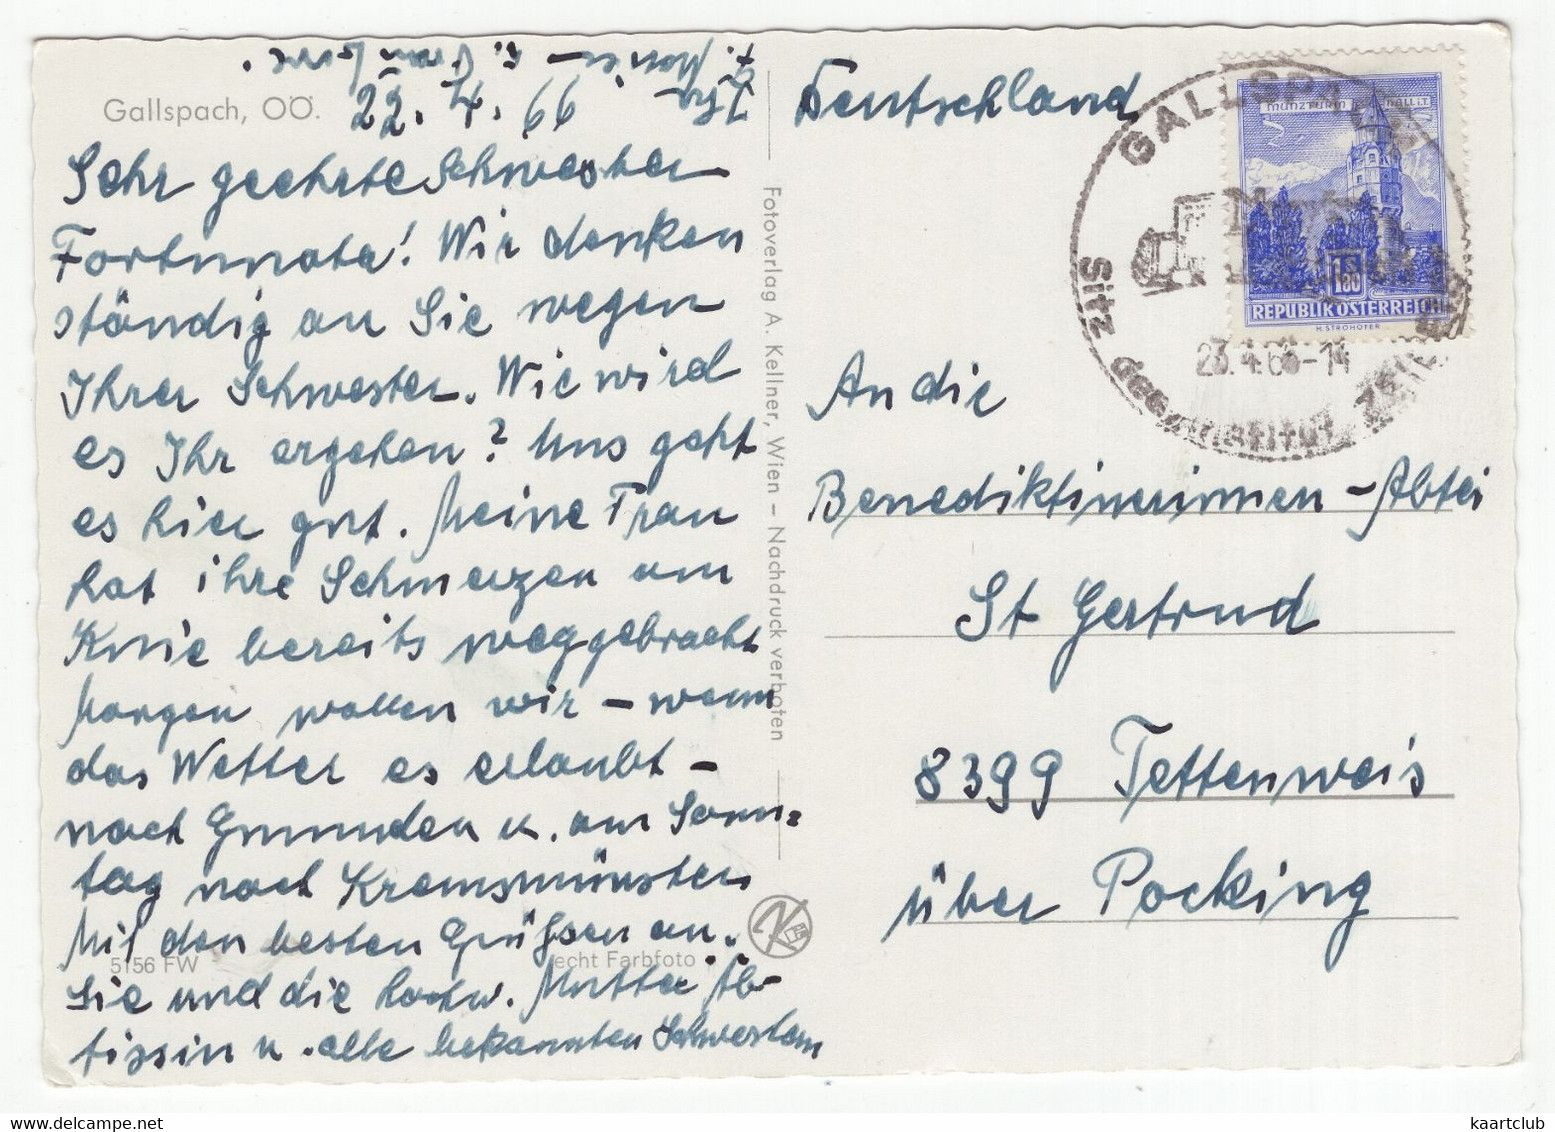 Gallspach, OÖ.
22. 4. 66
Sehr geehrte Schwester
Fortunata! Wir denken
ständig an Sie wegen
Ihrer Schwester. Wie wird
es Ihr ergehen? Uns geht
es hier gut. Meine Frau
hat ihre Schmerzen am
Knie bereits weggebracht
Morgen wollen wir – wenn
das Wetter es erlaubt –
nach Gmunden u. am Sonn-
tag nach Kremsmünster
Mit den besten Grüßen an.
Sie und die hochw. Mutter Äb-
tissin u. alle bekannten Schwestern
Ihr
u. Frau
5156 FW
echt Farbfoto
Fotoverlag A. Kellner, Wien – Nachdruck verboten
Deutschland
An die
Benediktinerinnen – Abtei
St Gertrud
8399 Tettenweis
über Pocking
GALLSPACH
Sitz des Institut Zeileis
23.4.66-14
MÜNZTURM
HALL i.T.
1.80
REPUBLIK ÖSTERREICH
H. STROHOFER
kaartclub